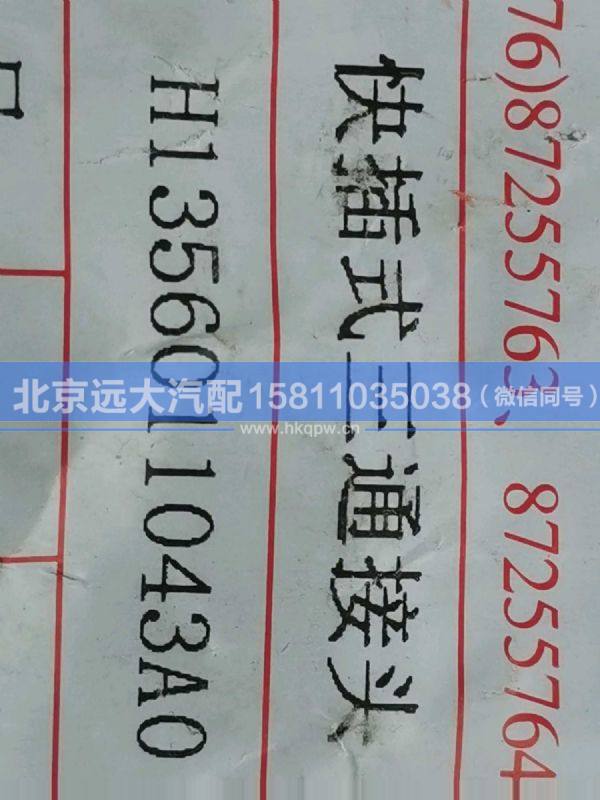 76)87255763、 87255764
快插式三通接头
H1356011043A0
北京远大汽配15811035038（微信同号）
www.hkqpw.cn